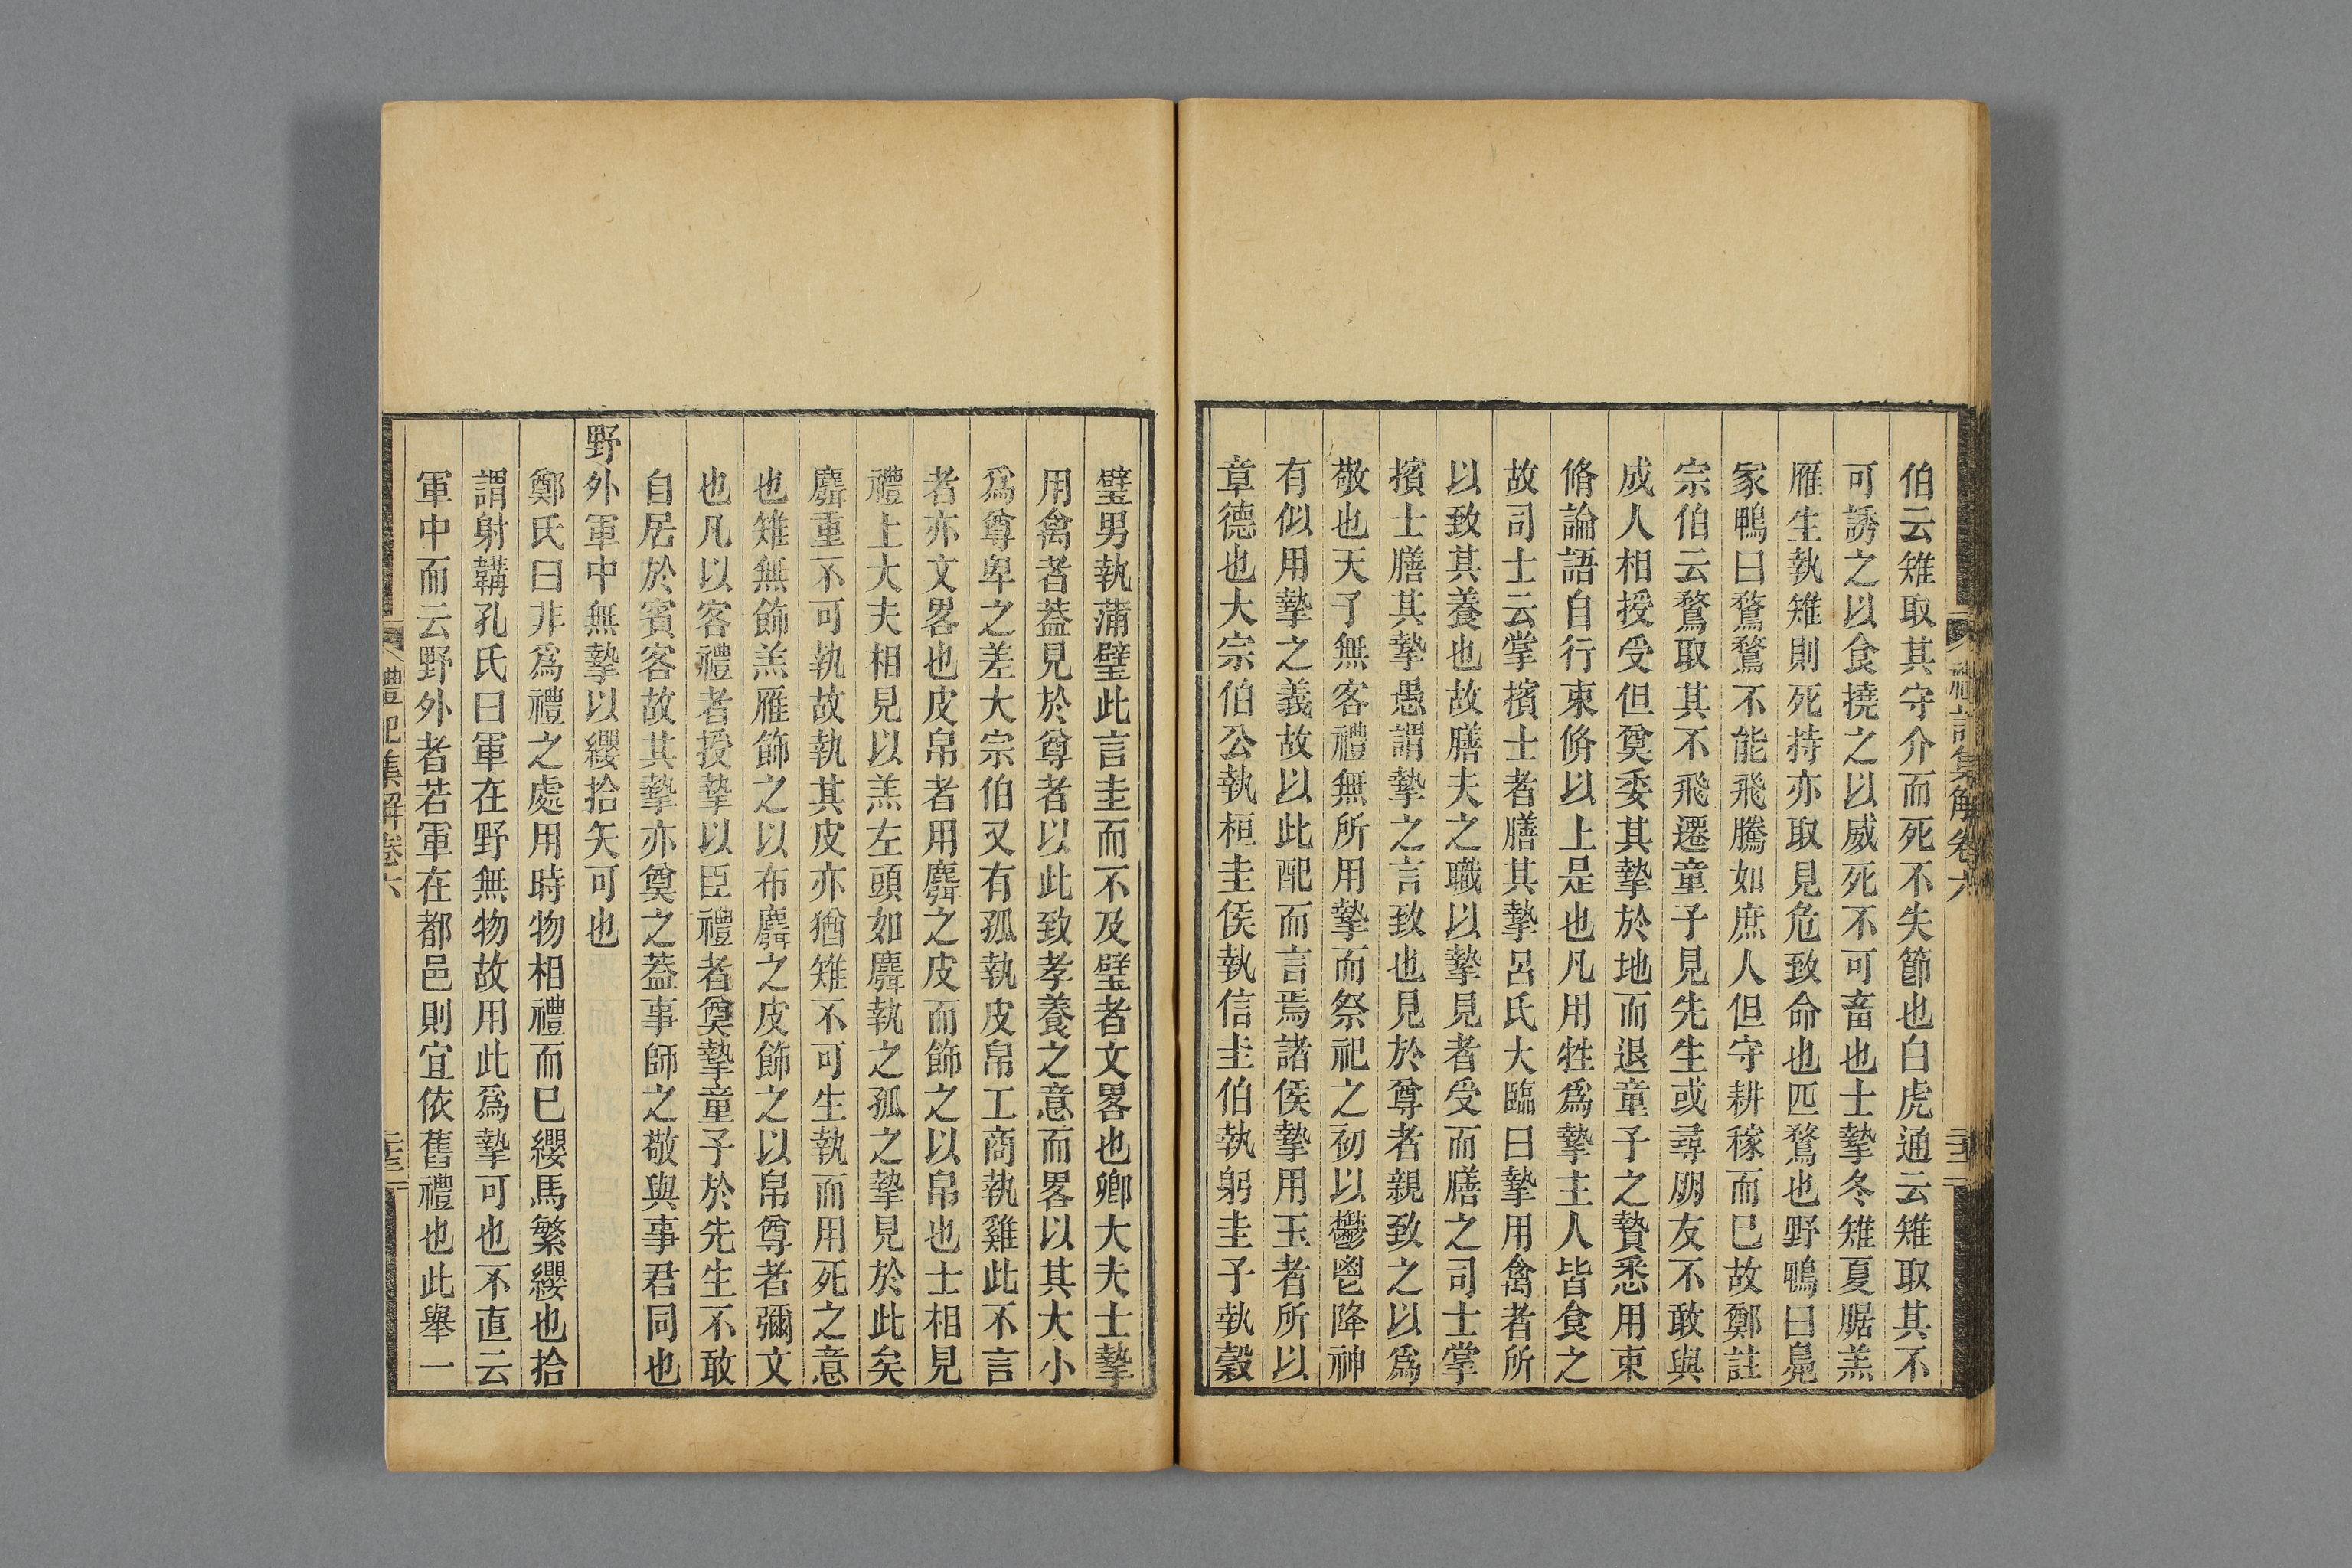 禮記集解卷六
伯云雉取其守介而死不失節也白虎通云雉取其不
可誘之以食撓之以威死不可畜也士摯冬雉夏腒羔
雁生執雉則死持亦取見危致命也匹鶩也野鴨曰鳧
家鴨曰鶩鶩不能飛騰如庶人但守耕稼而已故鄭註
宗伯云鶩取其不飛遷童子見先生或尋朋友不敢與
成人相授受但奠委其摯於地而退童子之贄悉用束
脩論語自行束脩以上是也凡用牲爲摯主人皆食之
故司士云掌擯士者膳其摯呂氏大臨曰摯用禽者所
以致其養也故膳夫之職以摯見者受而膳之司士掌
擯士膳其摯愚謂摯之言致也見於尊者親致之以爲
敬也天子無客禮無所用摯而祭祀之初以鬱鬯降神
有似用摯之義故以此配而言焉諸侯摯用玉者所以
章德也大宗伯公執桓圭侯執信圭伯執躬圭子執穀
璧男執蒲璧此言圭而不及璧者文畧也卿大夫士摯
用禽者葢見於尊者以此致孝養之意而畧以其大小
爲尊卑之差大宗伯又有孤執皮帛工商執雞此不言
者亦文畧也皮帛者用麛之皮而飾之以帛也士相見
禮上大夫相見以羔左頭如麛執之孤之摯見於此矣
麛重不可執故執其皮亦猶雉不可生執而用死之意
也雉無飾羔雁飾之以布麛之皮飾之以帛尊者彌文
也凡以客禮者授摯以臣禮者奠摯童子於先生不敢
自居於賓客故其摯亦奠之葢事師之敬與事君同也
野外軍中無摯以纓拾矢可也
鄭氏曰非爲禮之處用時物相禮而已纓馬繁纓也拾
謂射韝孔氏曰軍在野無物故用此爲摯可也不直云
軍中而云野外者若軍在都邑則宜依舊禮也此舉一
禮記集解卷六